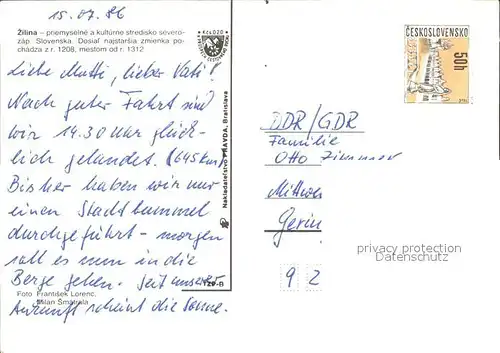 15.07.86
Žilina – priemyselné a kultúrne stredisko severo-
záp. Slovenska. Dosiaľ najstaršia zmienka po-
chádza z r. 1208, mestom od r. 1312
Liebe Mutti, lieber Vati!
Nach guter Fahrt sind
wir 14.30 Uhr glück-
lich gelandet. (645 km)
Bisher haben wir nur
einen Stadtbummel
durchgeführt - morgen
soll es nun in die
Berge gehen. Seit unserer
Foto František Lorenc,
Milan Šmátrala
Ankunft scheint die Sonne.
Nakladateľstvo PRAVDA, Bratislava
129-B
Kčs 0,20
ČESKOSLOVENSKO
50h
DDR/GDR
Familie
Otto
Mittwei
92
privacy protection
Datenschutz